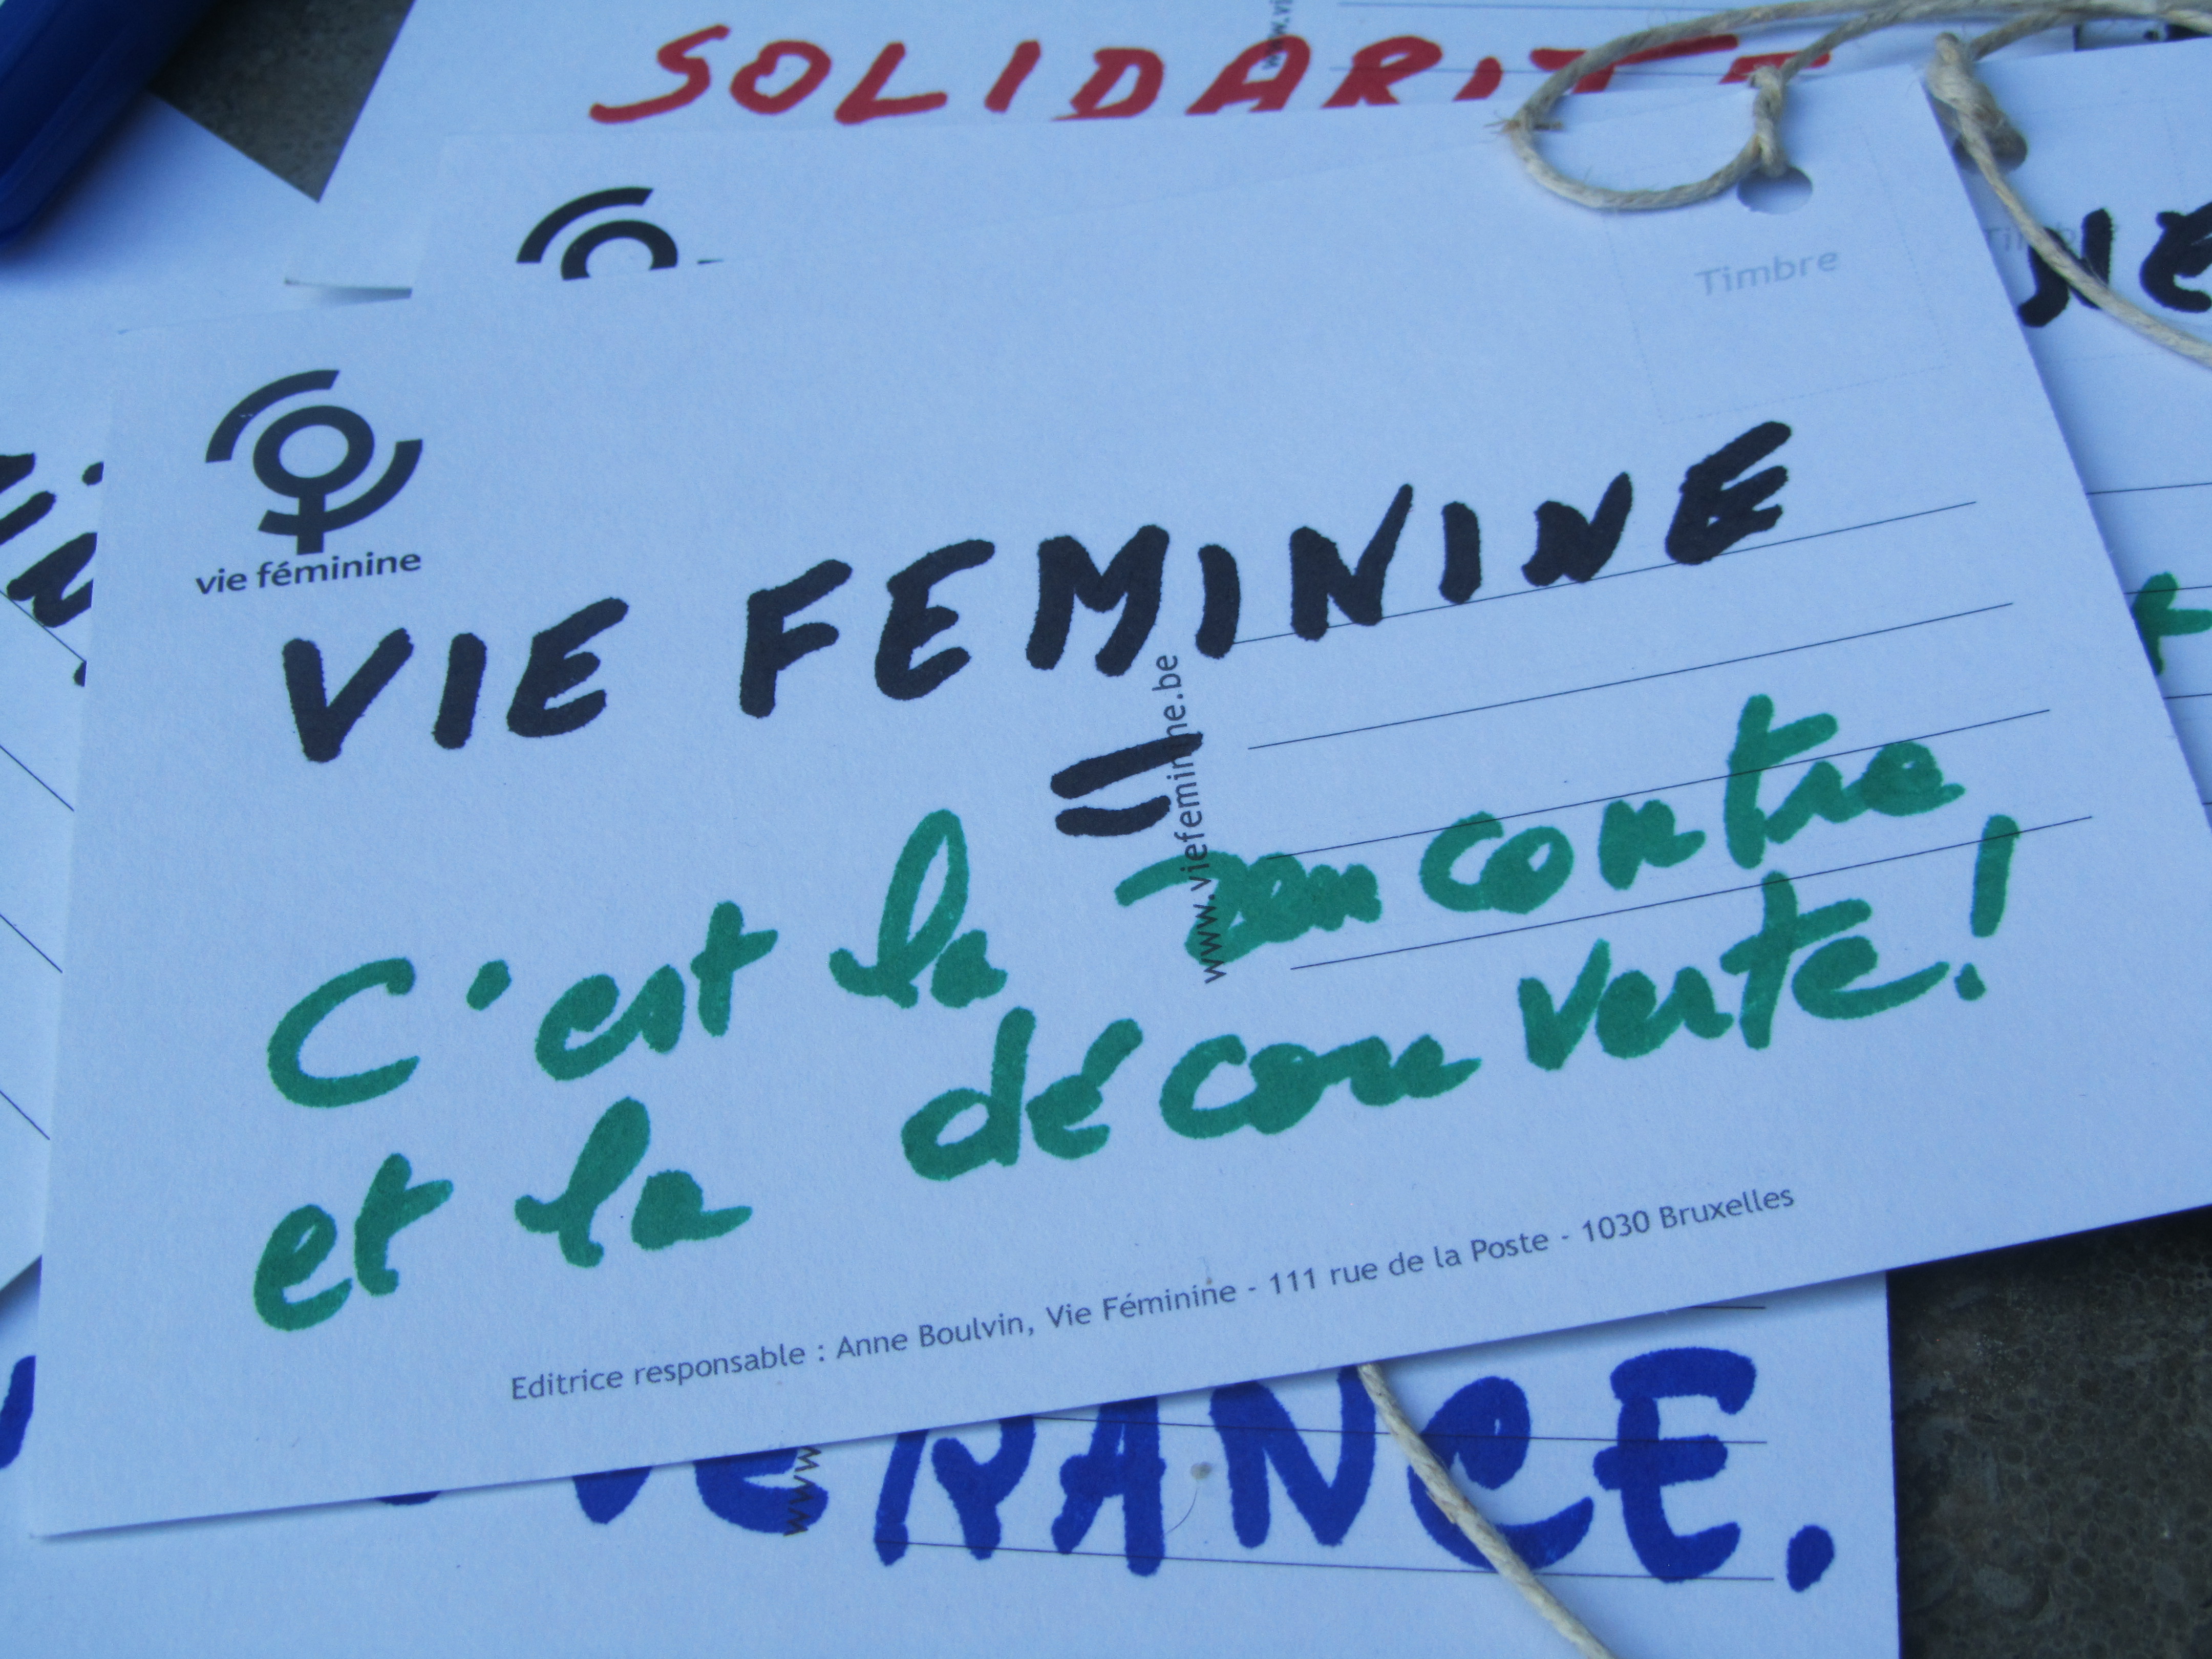 SOLIDARITE
Timbre
vie féminine
VIE FEMININE
=
www.viefeminine.be
C'est la rencontre
et la découverte!
Editrice responsable : Anne Boulvin, Vie Féminine - 111 rue de la Poste - 1030 Bruxelles